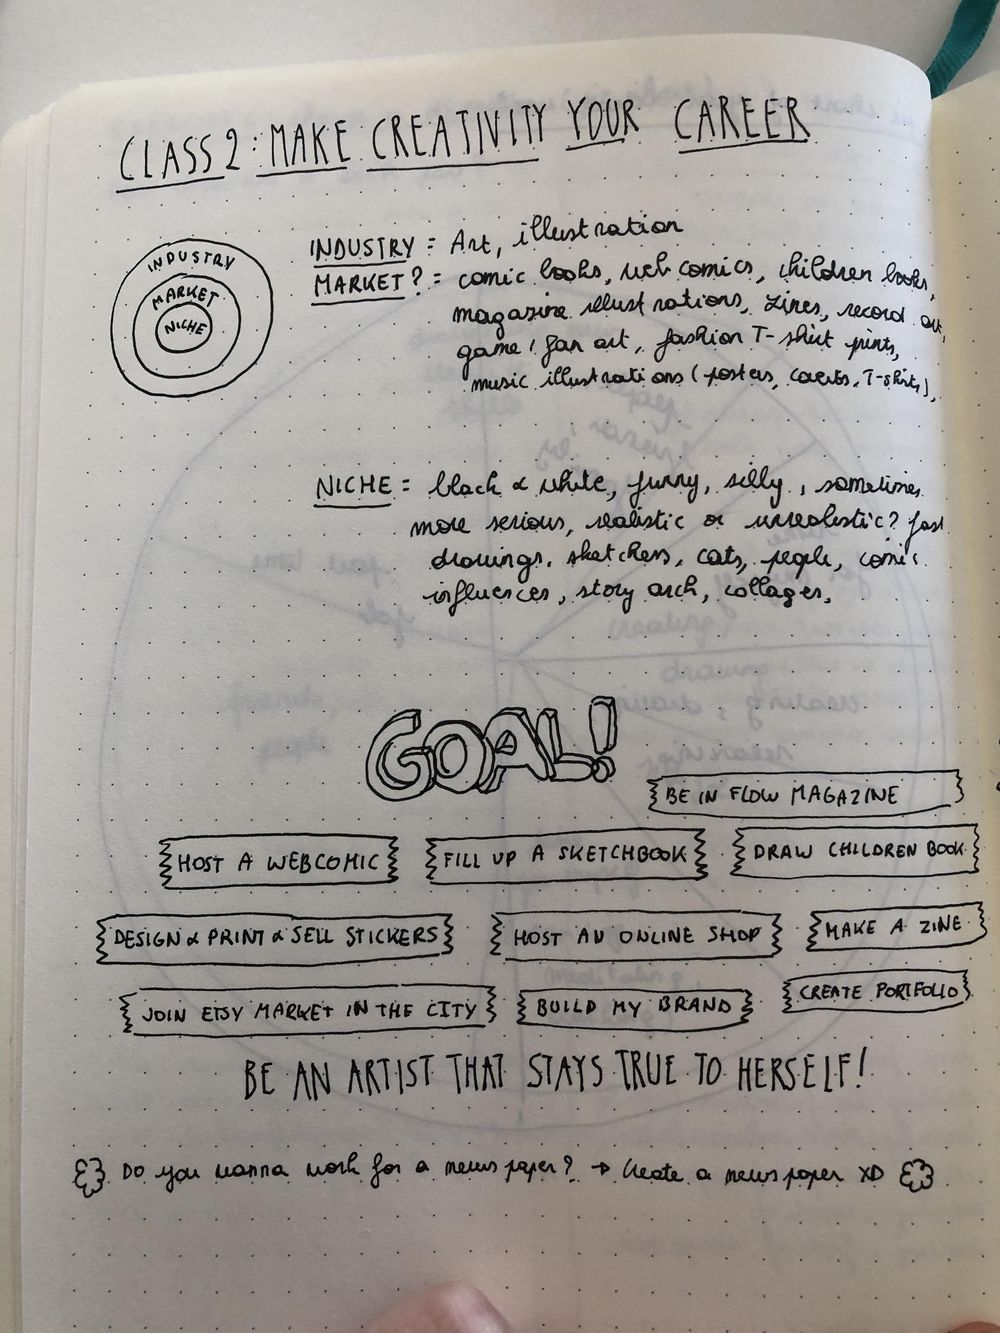 CLASS 2: MAKE CREATIVITY YOUR CAREER
INDUSTRY
MARKET
NICHE
INDUSTRY = Art, illustration
MARKET? = comic books, web comics, children books,
magazine illustrations, zines, record art,
game / fan art, fashion T-shirt prints,
music illustrations (posters, covers, T-shirts),
NICHE = black & white, funny, silly, sometimes
more serious, realistic or unrealistic? fast
drawings, sketchers, cats, people, comic
influences, story arch, collages,
GOAL!
BE IN FLOW MAGAZINE
HOST A WEBCOMIC
FILL UP A SKETCHBOOK
DRAW CHILDREN BOOK
DESIGN & PRINT & SELL STICKERS
HOST AN ONLINE SHOP
MAKE A ZINE
JOIN ETSY MARKET IN THE CITY
BUILD MY BRAND
CREATE PORTFOLIO
BE AN ARTIST THAT STAYS TRUE TO HERSELF!
Do you wanna work for a newspaper? → Create a newspaper XD